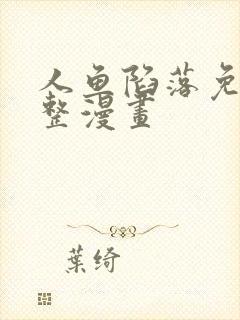 人鱼陷落免
整漫畫
葉绮